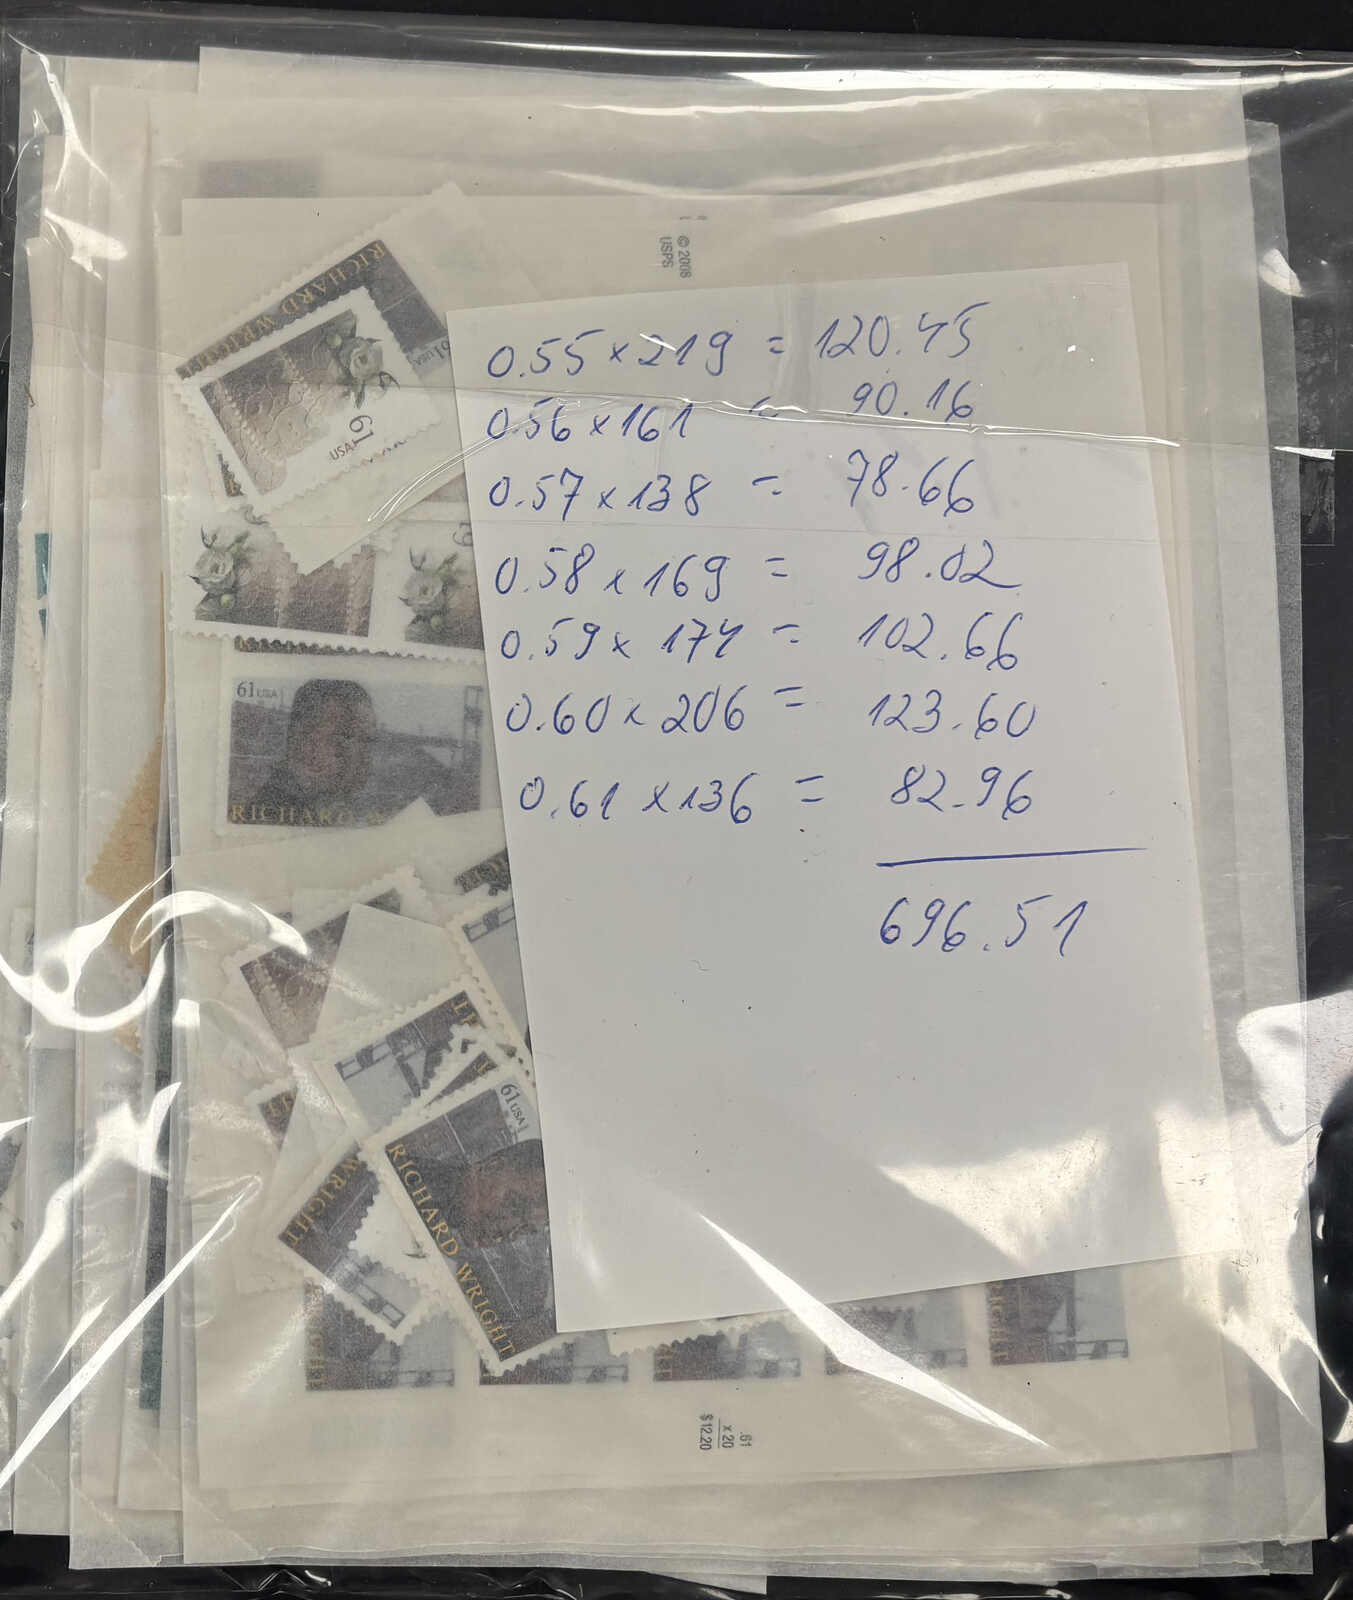 © 2008
USPS
RICHARD WRIGHT
61USA
61
USA
61
61USA
RICHARD W
61USA
RICHARD WRIGHT
WRIGHT
0.55 x 219 = 120.45
0.56 x 161 = 90.16
0.57 x 138 = 78.66
0.58 x 169 = 98.02
0.59 x 174 = 102.66
0.60 x 206 = 123.60
0.61 x 136 = 82.96
696.51
.61
x 20
$12.20